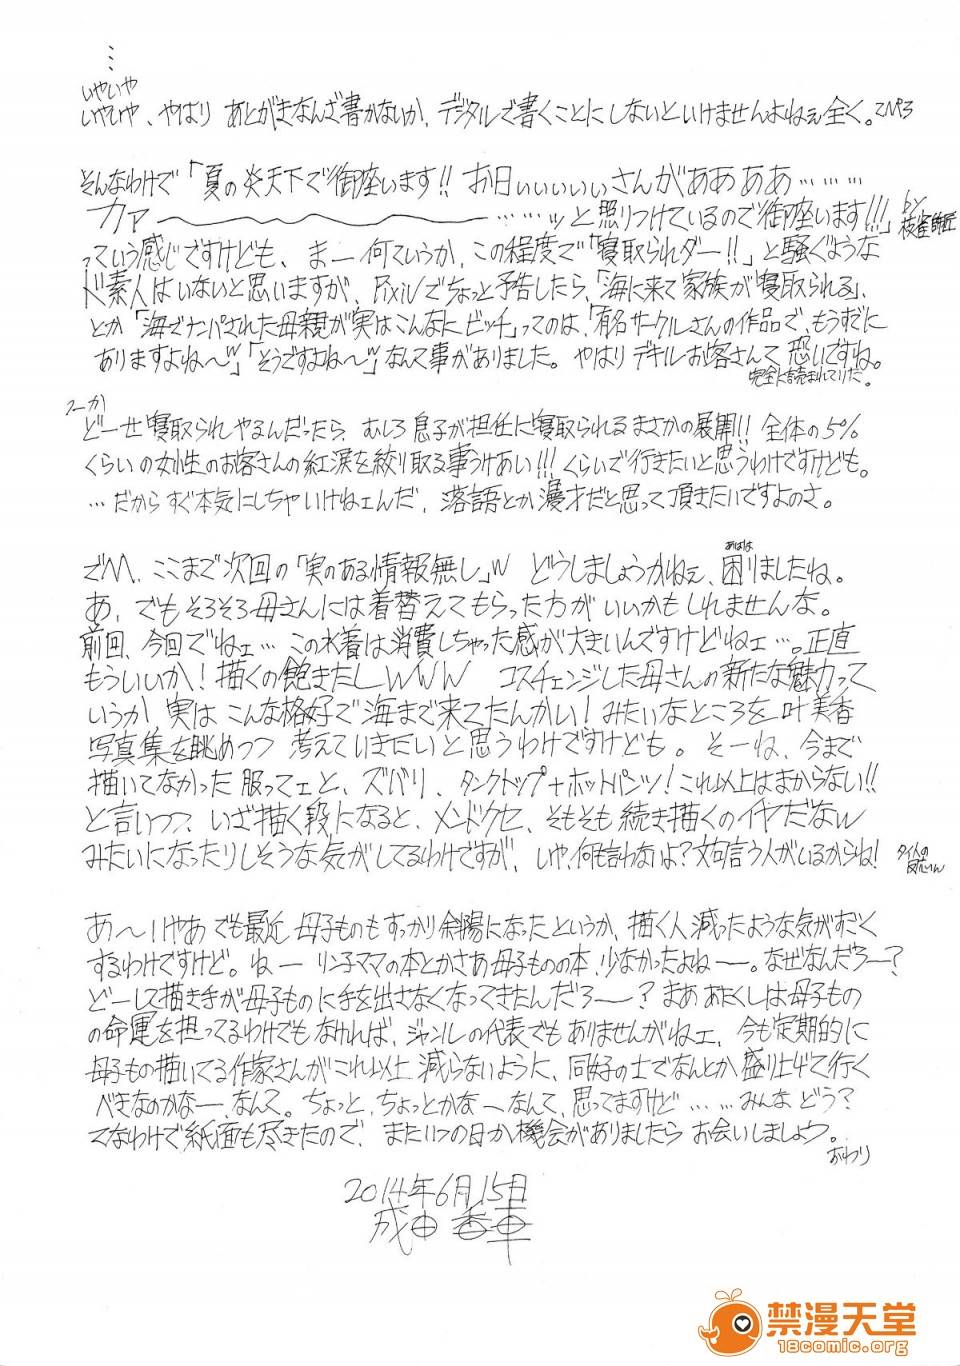 …
いやいや
いやいや、やはり あとがきなんざ書かないか、デジタルで書くことにしないといけませんよねぇ全く。
そんなわけで「夏の炎天下で御座います!! お日ぃぃぃぃぃさんがああああ………
カァー〜〜〜〜〜……ッと照りつけているので御座います!!!」by 枝雀師匠
っていう感じですけども、まー何ていうか、この程度で「寝取られダー!!」と騒ぐような
ド素人はいないと思いますが、Pixivでちょっと予告したら、「海に来て家族が寝取られる」、
とか「海でナンパされた母親が実はこんなにビッチ」ってのは、「有名サークルさんの作品で、もうすでに
ありますよね〜w」「そうですよね〜w」なんて事がありました。やはりデキルお客さんて恐いですね。
完全に読まれてりだ。
つーか
どーせ寝取られやるんだったら、むしろ息子が担任に寝取られるまさかの展開!! 全体の5%
くらいの女性のお客さんの紅涙を絞り取る事うけあい!!! くらいで行きたいと思うわけですけども。
…だからすぐ本気にしちゃいけねェんだ、落語とか漫才だと思って頂きたいですよのさ。
でハハ、ここまで次回の「実のある情報無し」w どうしましょうかねぇ、困りましたね。
あ、でもそろそろ母さんには着替えてもらった方がいいかもしれませんな。
前回、今回でねェ…この水着は消費しちゃった感が大きいんですけどねェ…。正直
もういいか!描くの飽きたしwww コスチェンジした母さんの新たな魅力って
いうか、実はこんな格好で海まで来てたんかい!みたいなところを叶美香
写真集を眺めつつ 考えていきたいと思うわけですけども。そーね、今まで
描いてなかった服ってェと、ズバリ、タンクトップ+ホットパンツ!これ以上はまからない!!
と言いつつ、いざ描く段になると、メンドクセ、そもそも続き描くのイヤだなw
みたいになったりしそうな気がしてるわけですが、いや、何も言わないよ?文句言う人がいるからね!
あ〜いやあでも最近 母子ものもすっかり斜陽になったというか、描く人減ったような気がすごく
するわけですけど。ねーリン子ママの本とかさあ母子ものの本、少なかったよねー。なぜなんだろー?
どーして描き手が母子ものに手を出さなくなってきたんだろー?まああたくしは母子もの
の命運を担ってるわけでもなければ、ジャンルの代表でもありませんがねェ、今も定期的に
母子もの描いてる作家さんがこれ以上減らないように、同好の士でなんとか盛り上げて行く
べきなのかなー、なんて。ちょっと、ちょっとかなーなんて、思ってますけど……みんなどう?
てなわけで紙面も尽きたので、またいつの日か機会がありましたら お会いしましょう。
おわり
2014年6月15日
成田香車
禁漫天堂
18comic.org